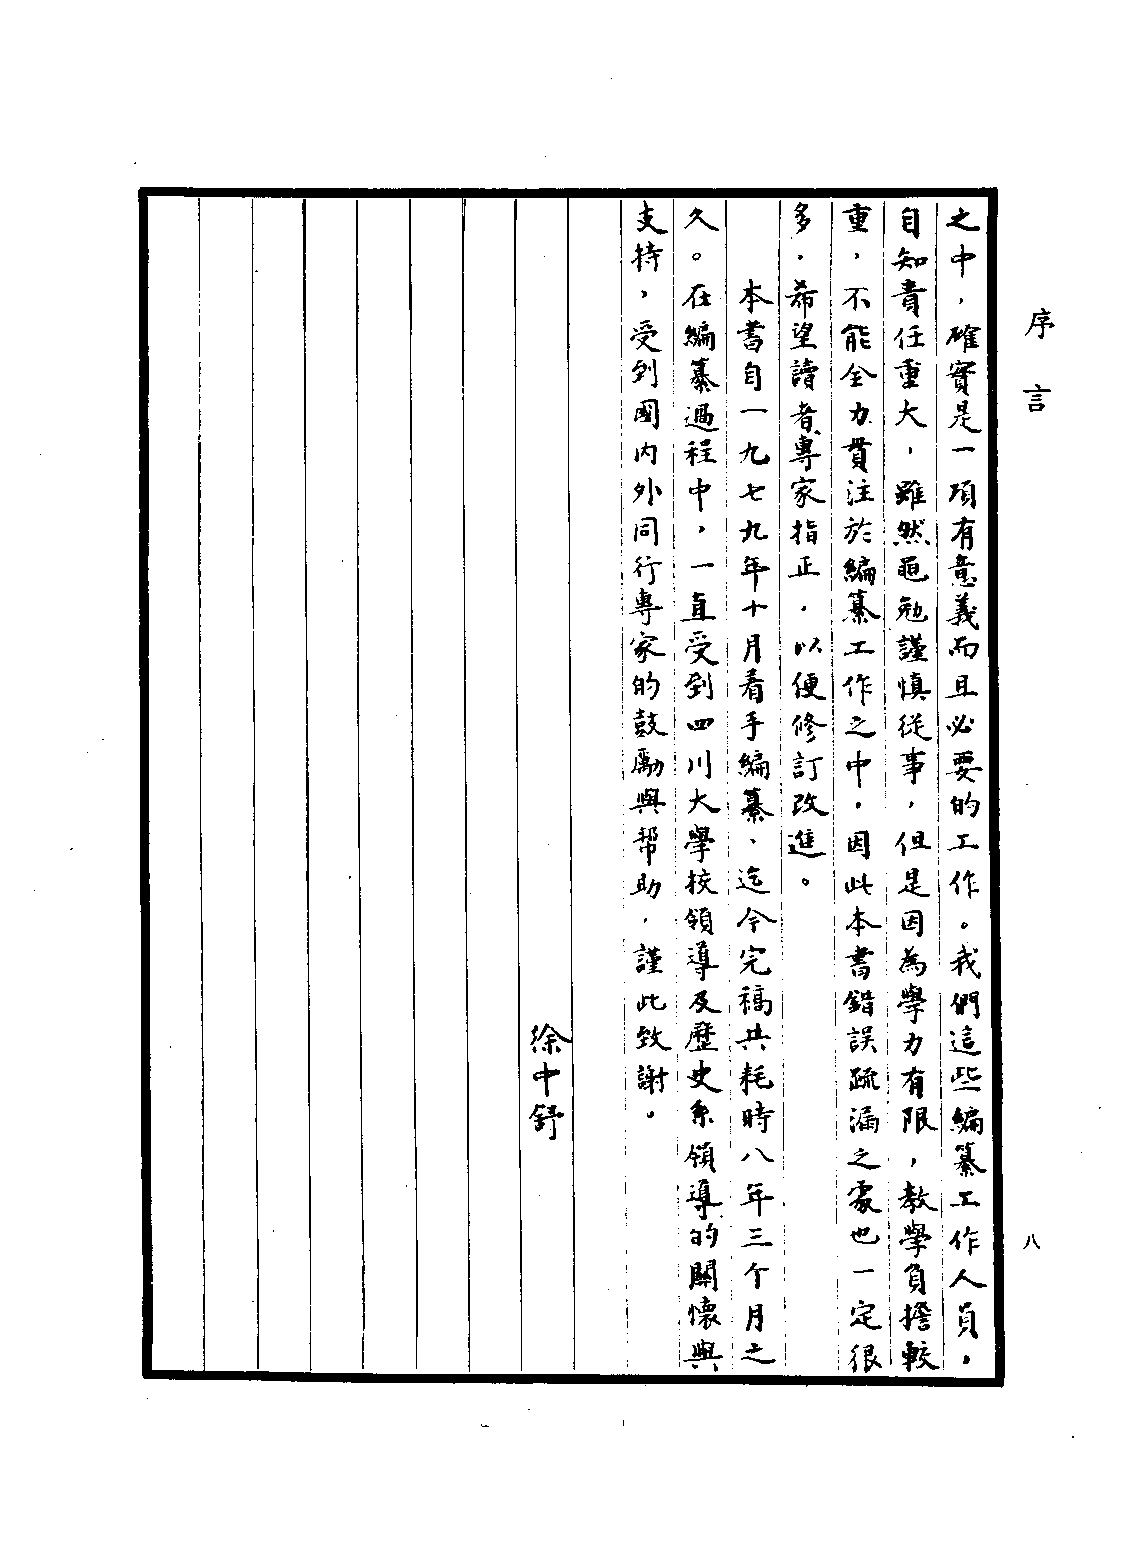 序言
八
之中，確實是一項有意義而且必要的工作。我們這些編纂工作人員，
自知責任重大，雖然黽勉謹慎從事，但是因為學力有限，教學負擔較
重，不能全力貫注於編纂工作之中，因此本書錯誤疏漏之處也一定很
多，希望讀者、專家指正，以便修訂改進。
本書自一九七九年十月着手編纂、迄今完稿共耗時八年三个月之
久。在編纂過程中，一直受到四川大學校領導及歷史系領導的關懷與
支持，受到國内外同行專家的鼓勵與帮助，謹此致謝。
徐中舒